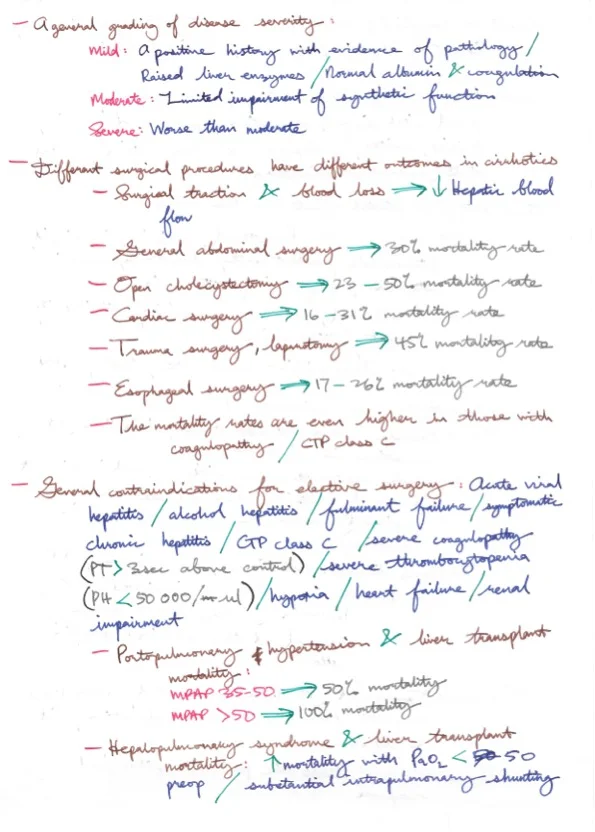 — A general grading of disease severity :
Mild : A positive history with evidence of pathology /
Raised liver enzymes / Normal albumin & coagulation
Moderate : Limited impairment of synthetic function
Severe : Worse than moderate
— Different surgical procedures have different outcomes in cirrhotics
— Surgical traction & blood loss ⟹ ↓ Hepatic blood
flow
— General abdominal surgery ⟹ 30% mortality rate
— Open cholecystectomy ⟹ 23 – 50% mortality rate
— Cardiac surgery ⟹ 16 – 31% mortality rate
— Trauma surgery, laparotomy ⟹ 45% mortality rate
— Esophageal surgery ⟹ 17 – 26% mortality rate
— The mortality rates are even higher in those with
coagulopathy / CTP class C
— General contraindications for elective surgery : Acute viral
hepatitis / alcohol hepatitis / fulminant failure / symptomatic
chronic hepatitis / CTP class C / severe coagulopathy
(PT > 3sec above control) / severe thrombocytopenia
(Plt < 50 000/ ul) / hypoxia / heart failure / renal
impairment
— Portopulmonary hypertension & liver transplant
mortality :
MPAP 35-50 ⟹ 50% mortality
MPAP >50 ⟹ 100% mortality
— Hepatopulmonary syndrome & liver transplant
mortality : ↑ mortality with PaO₂ < 50
preop / substantial intrapulmonary shunting